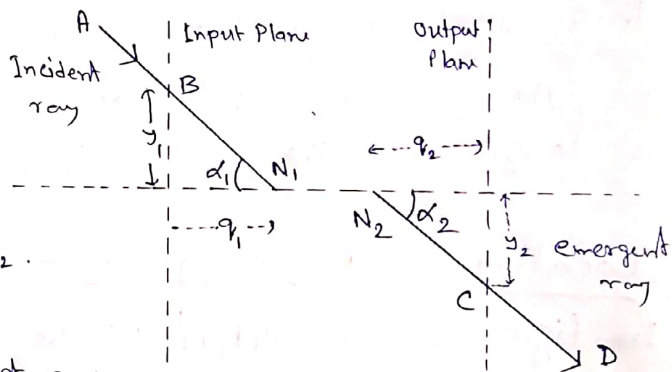 A
Input Plane
Output
Plane
Incident
ray
B
y₁
α₁
N₁
q₂
q₁
N₂
α₂
y₂
emergent
ray
2.
C
D